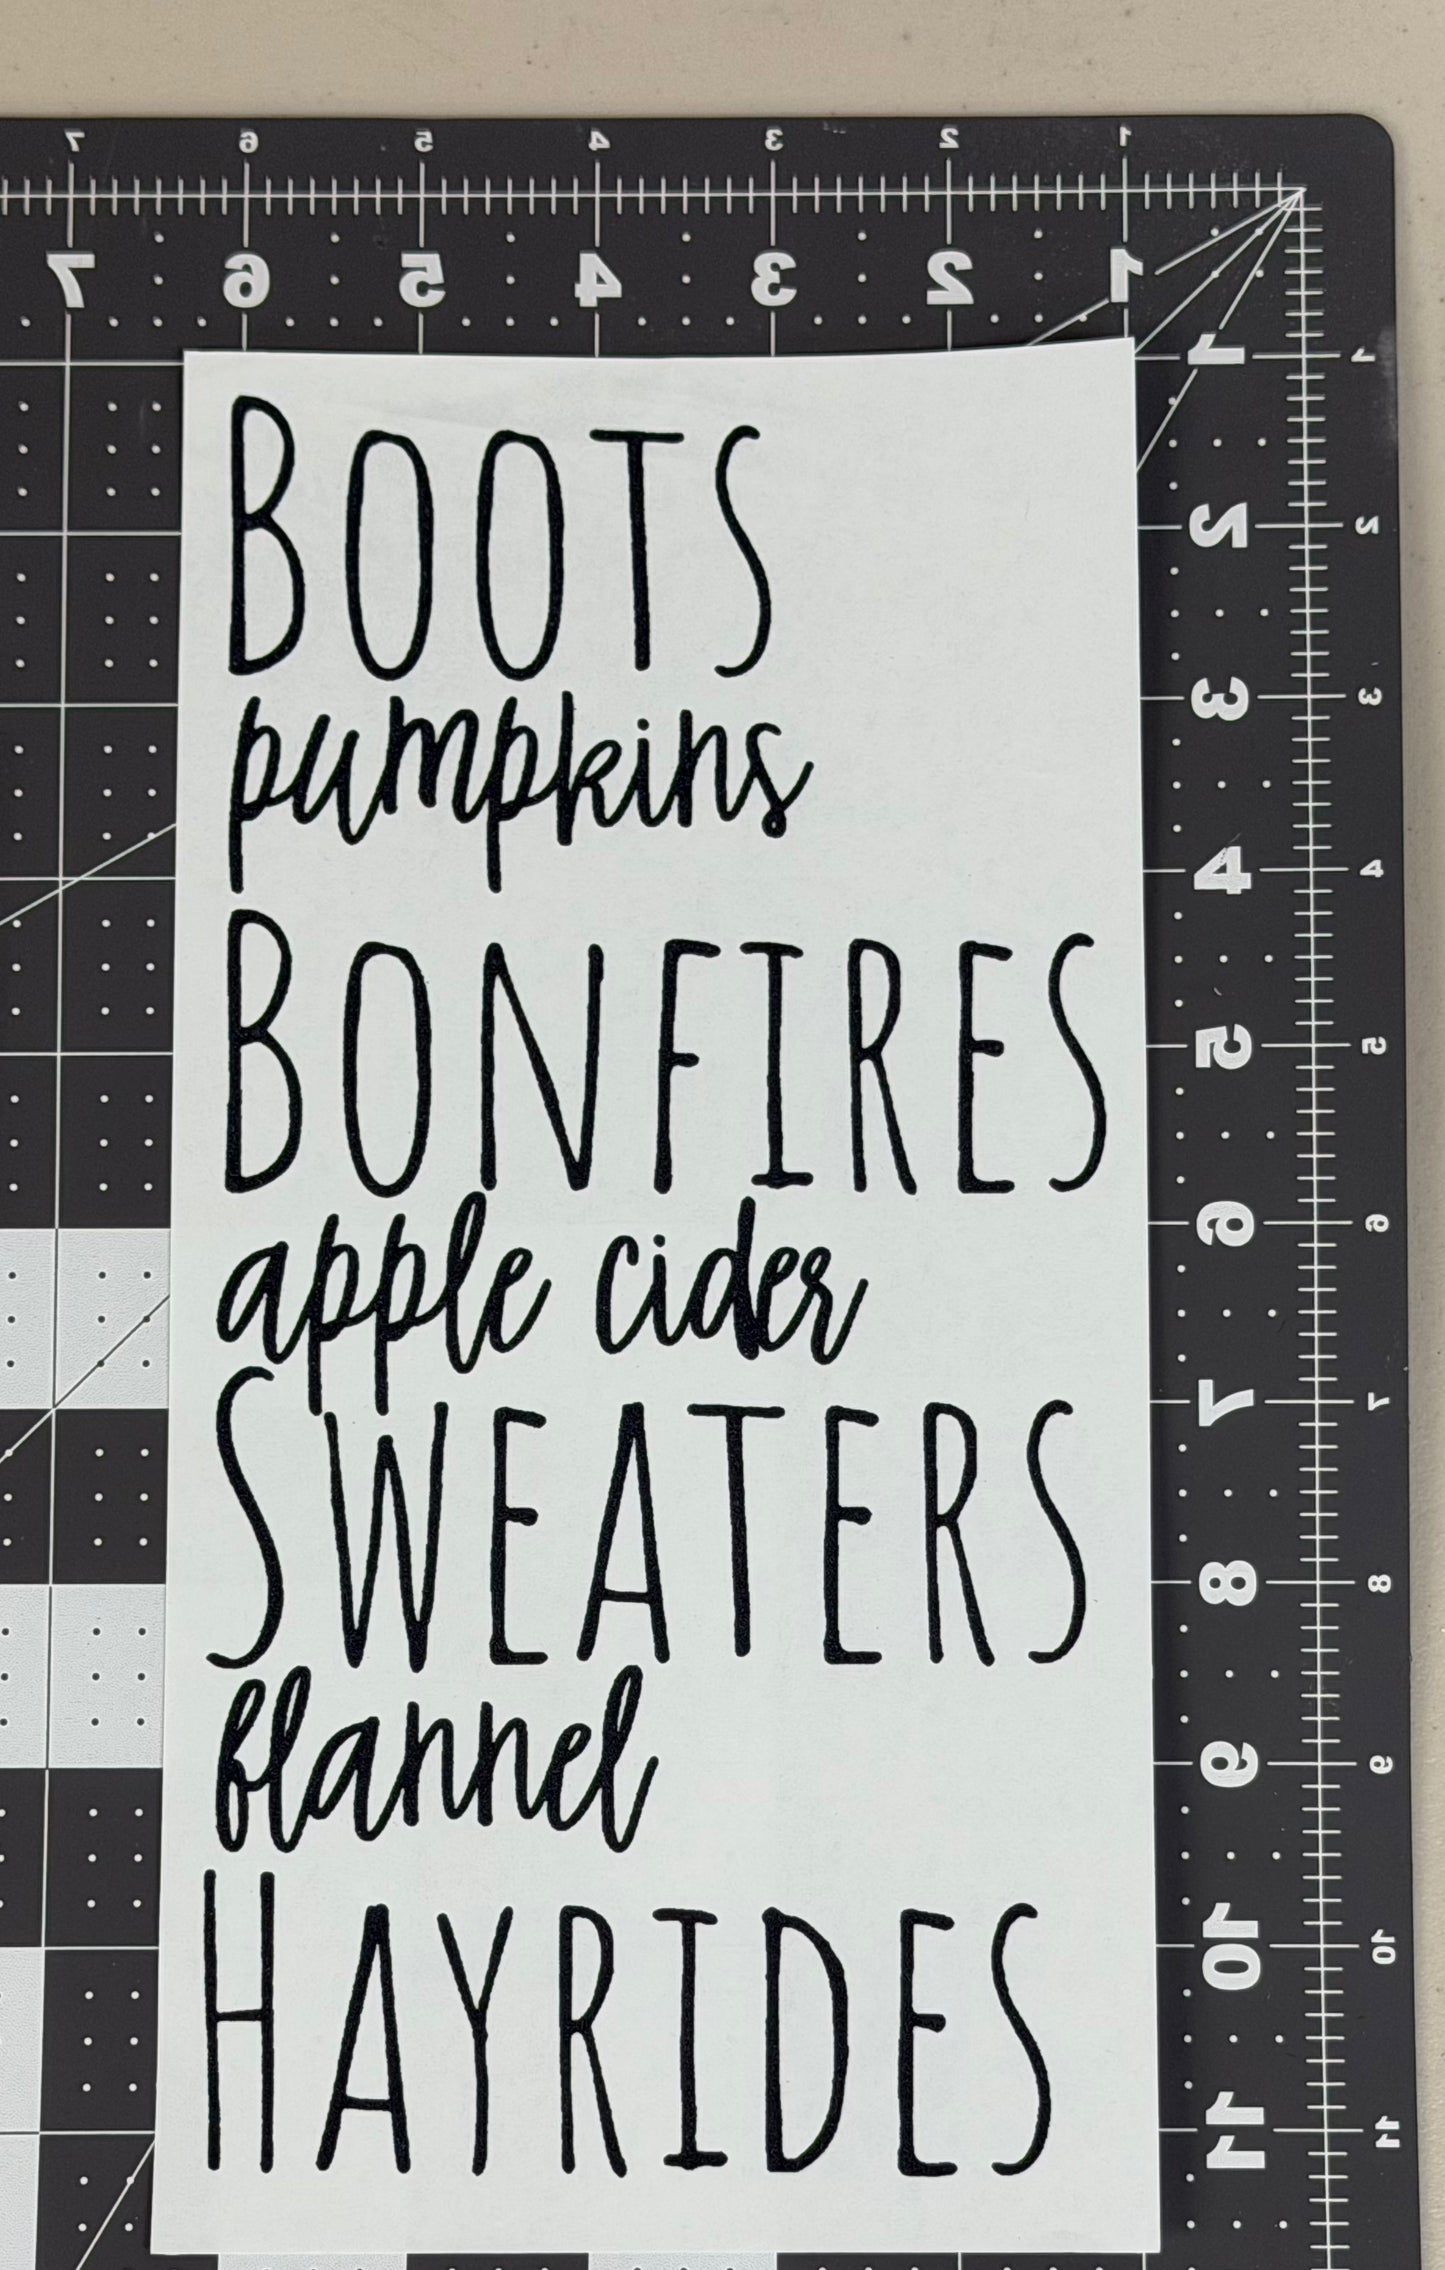 7 6 5 4 3 2 1
7 6 5 4 3 2 1
BOOTS
pumpkins
BONFIRES
apple cider
SWEATERS
flannel
HAYRIDES
1 1
2 2
3 3
4 4
5 5
6 6
7 7
8 8
9 9
10 10
11 11